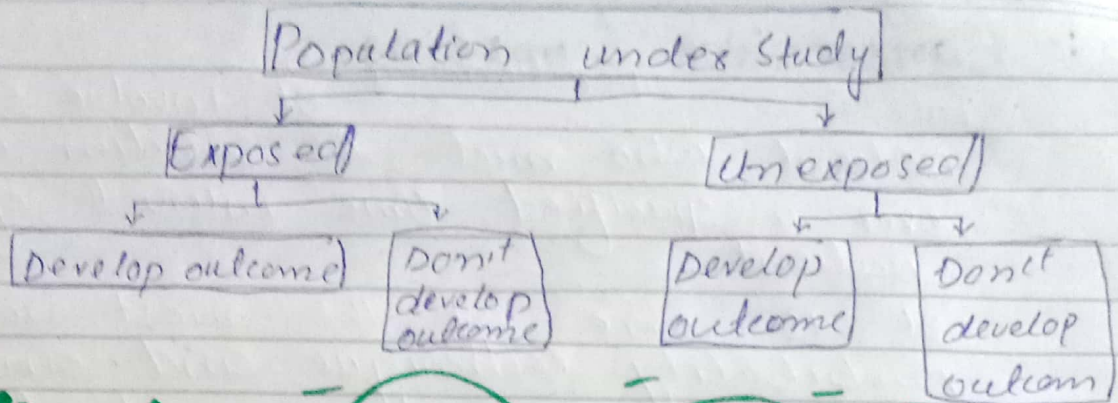 Population under study
Exposed
Unexposed
Develop outcome
Don't
develop
outcome
Develop
outcome
Don't
develop
outcom